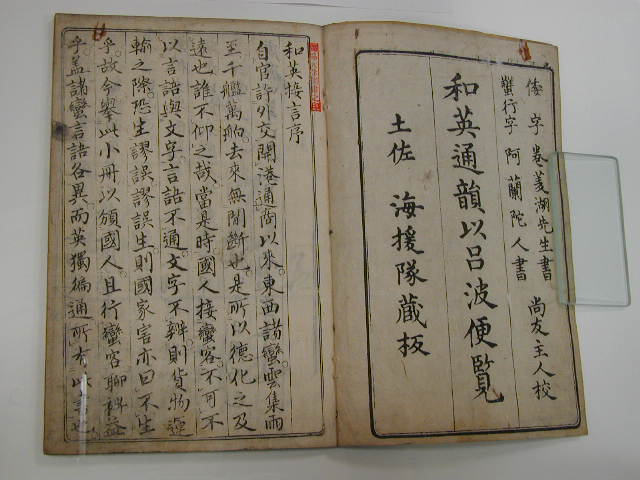 倭字 巻菱湖先生書 尚友主人校
蠻行字 阿蘭陀人書
和英通韻以呂波便覧
土佐 海援隊蔵板
和英接言序
自官許外交開港通商以來東西諸蠻雲集雨
至千艘萬舶去來無間断也是所以德化之及
遠也誰不仰之哉當是時國人接蠻客不可不
以言語與文字言語不通文字不辨則貨物運
輸之際恐生謬誤謬誤生則國家害亦曰不生
乎故今擧此小冊以頒國人且行蠻客聊裨益
乎蓋諸蠻言語各異而英獨徧通所有